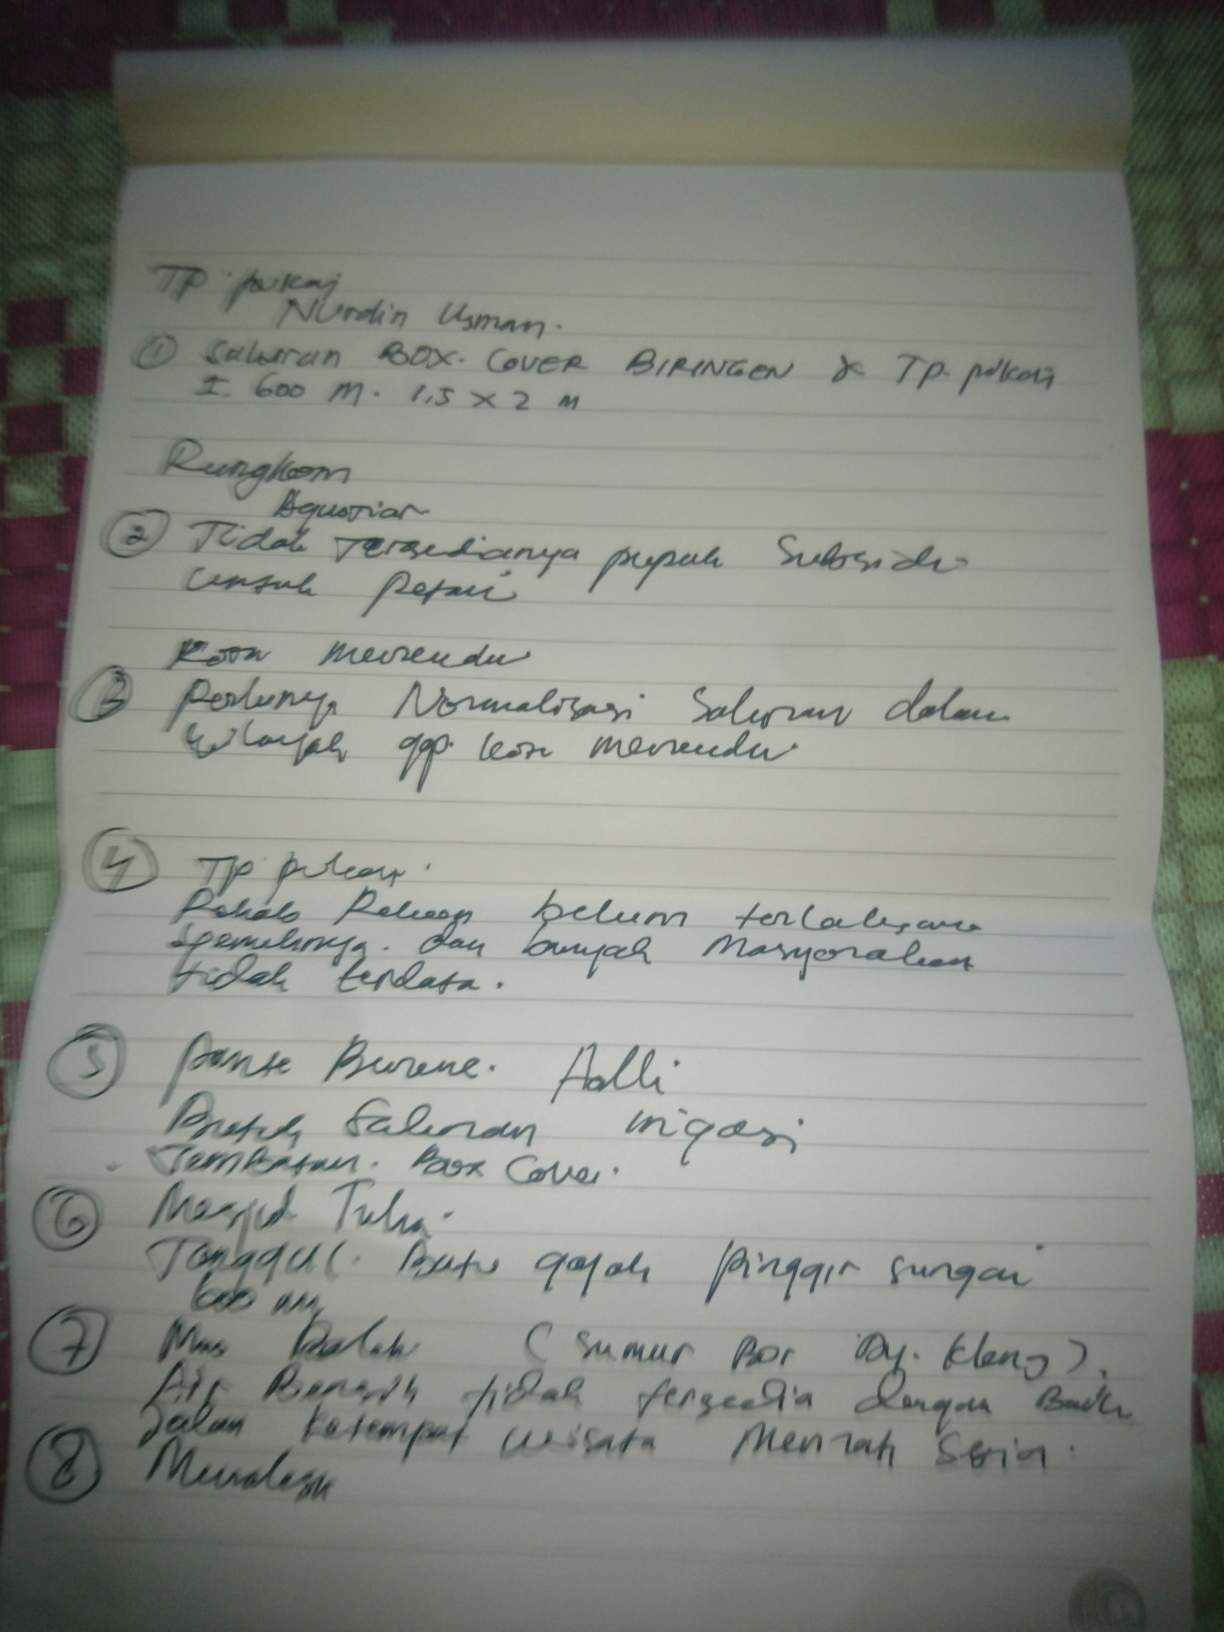 TP pukaj
Nurdin Usman.
① Saluran BOX. COVER BIRINGEN & TP. pukaj
± 600 M. 1,5 x 2 M
Rungkom
Agustiar
② Tidak Tersedianya pupuk Subsidi
untuk petani
Kota meureudu
③ perlunya Normalisasi Saluran dalam
wilayah gp. kota meureudu.
④ TP pukaj.
Rehab belum terlaksana
semuanya. dan banyak Masyarakat
tidak terdata.
⑤ Pante Beureune.
Butuh Saluran irigasi
Jembatan. Box Cover.
⑥ Mesjid Tuha.
Tanggul. Batu gajah pinggir sungai
600 m
⑦ (Sumur Bor
Air Bersih tidak tersedia dengan Baik
Jalan ketempat wisata
⑧